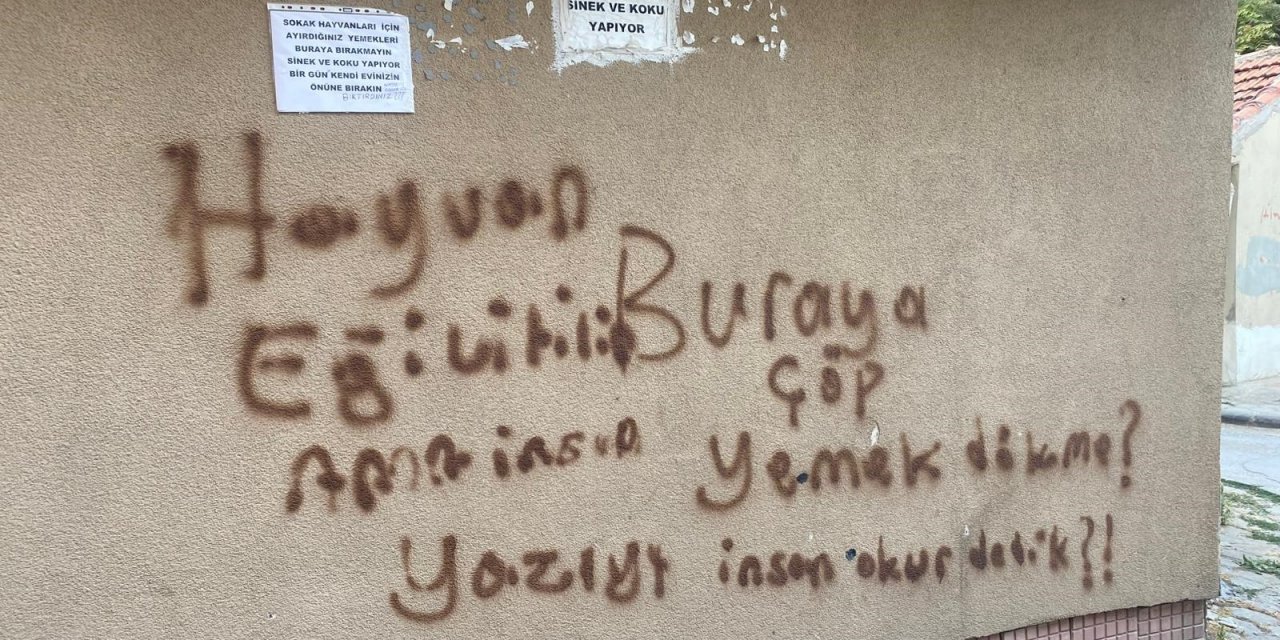 SOKAK HAYVANLARI İÇİN
AYIRDIĞINIZ YEMEKLERİ
BURAYA BIRAKMAYIN
SİNEK VE KOKU YAPIYOR
BİR GÜN KENDİ EVİNİZİN
ÖNÜNE BIRAKIN
SİNEK VE KOKU
YAPIYOR
Hayvan
Eğitilir
AMA insan
Buraya
Çöp
Yemek dökme?
Yazıyı insan okur dedik?!